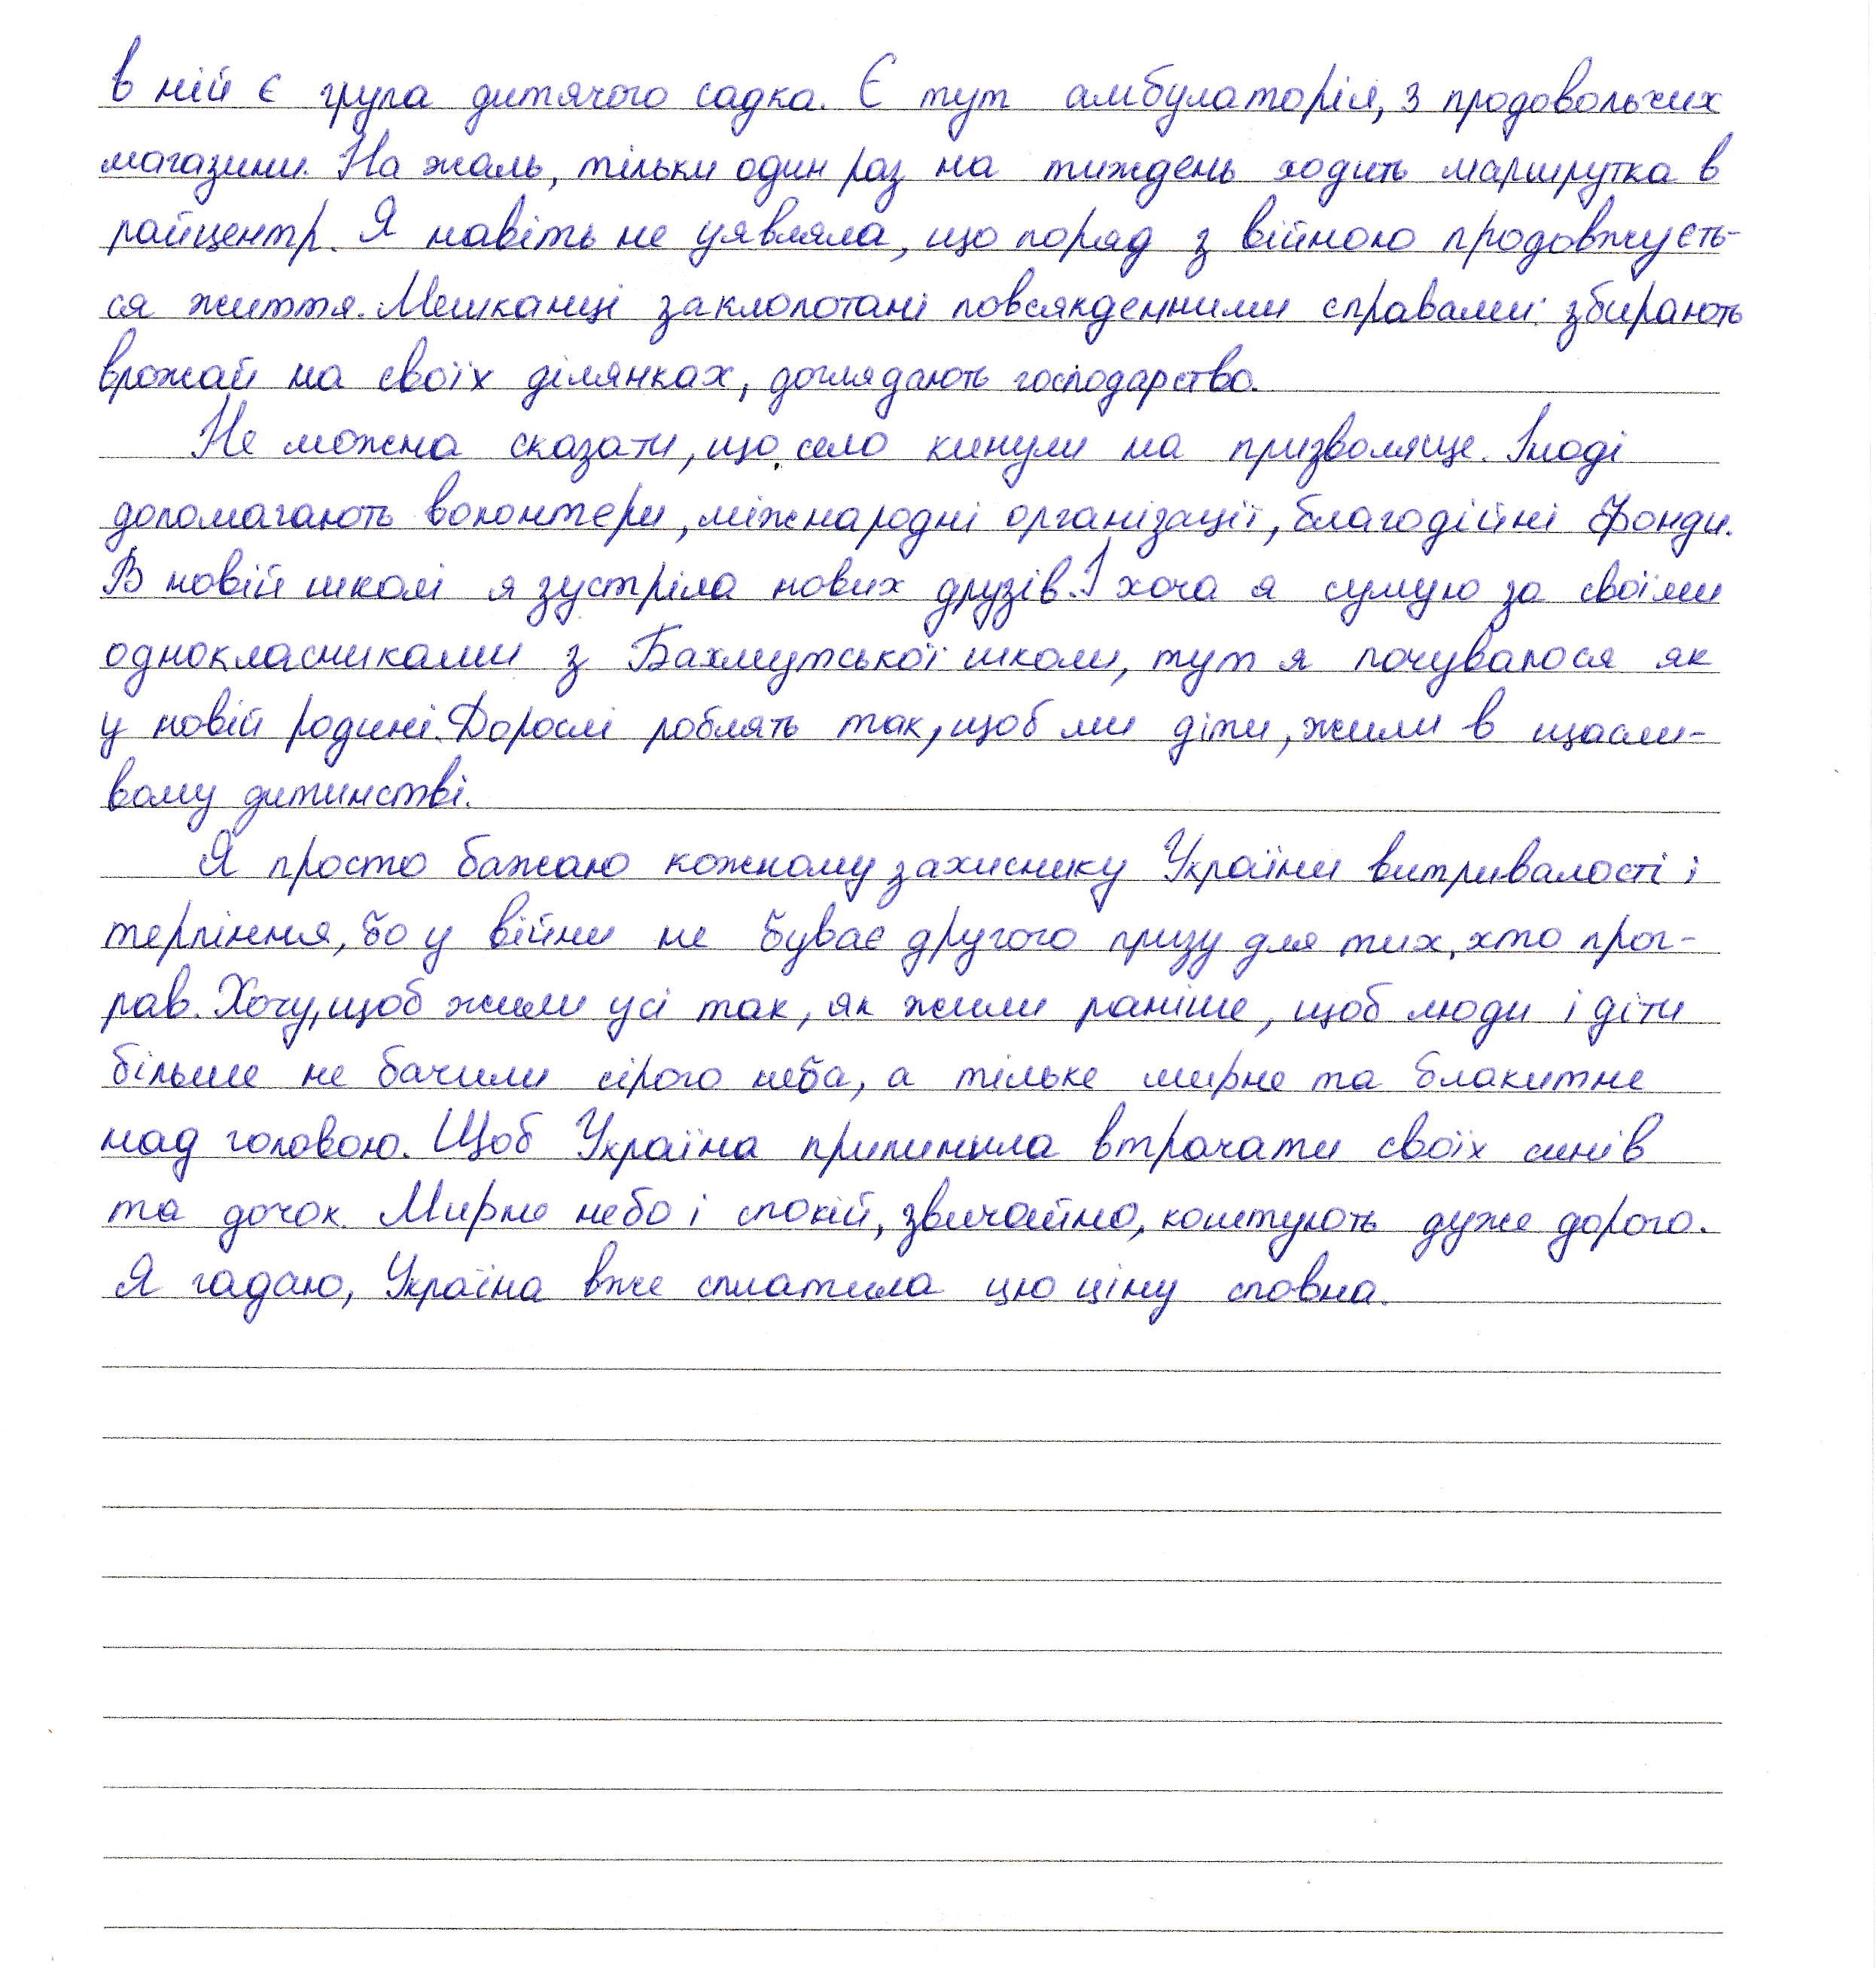 в ній є група дитячого садка. Є тут амбулаторія, 3 продовольчих
магазини. На жаль, тільки один раз на тиждень ходить маршрутка в
райцентр. Я навіть не уявляла, що поряд з війною продовжуєть-
ся життя. Мешканці заклопотані повсякденними справами: збирають
врожай на своїх ділянках, доглядають господарство.
Не можна сказати, що село кинули на призволяще. Іноді
допомагають волонтери, міжнародні організації, благодійні фонди.
В новій школі я зустріла нових друзів. І хоча я сумую за своїми
однокласниками з Бахмутської школи, тут я почувалося як
у новій родині. Дорослі роблять так, щоб ми діти, жили в щасли-
вому дитинстві.
Я просто бажаю кожному захиснику України витривалості і
терпіння, бо у війни не буває другого призу для тих, хто прог-
рав. Хочу, щоб жили усі так, як жили раніше, щоб люди і діти
більше не бачили сірого неба, а тільке мирне та блакитне
над головою. Щоб Україна припинила втрачати своїх синів
та дочок. Мирне небо і спокій, звичайно, коштують дуже дорого.
Я гадаю, Україна вже сплатила цю ціну сповна.